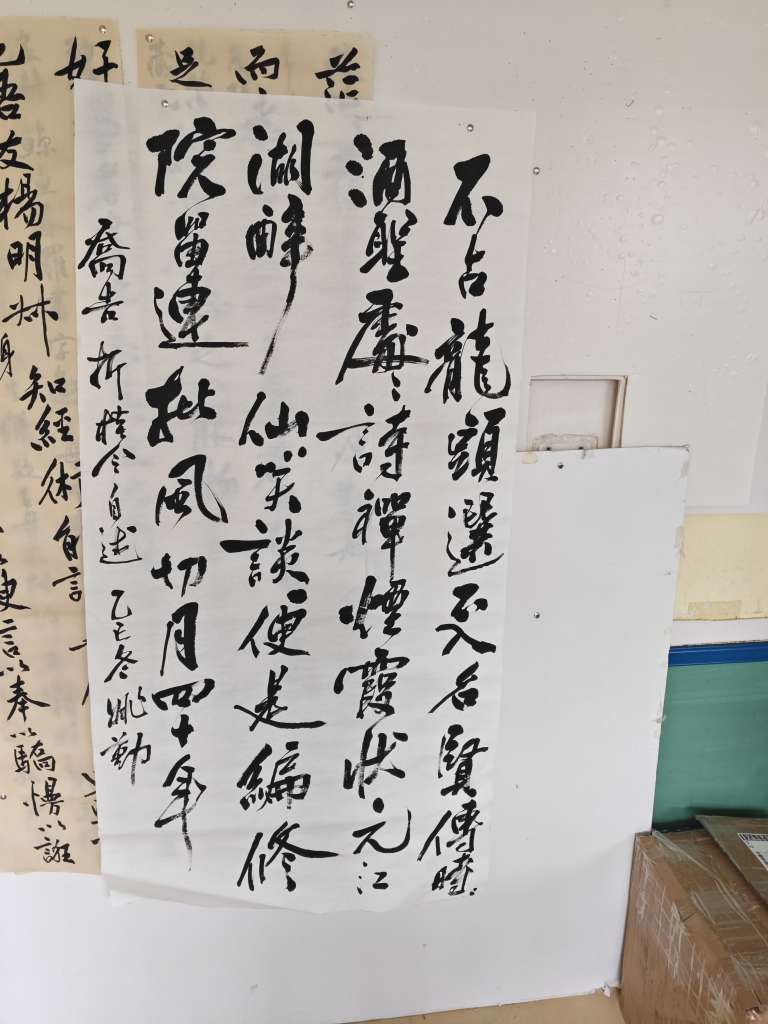 不占龍頭選不入名賢傳時々
酒聖處々詩禪煙霞狀元江
湖醉仙笑談便是編修
院留連批風切月四十年
喬吉折桂令自述 乙巳冬 姚勤
而
足
好
知經術自言
吾友楊明
便言以奉以驕慢以誑